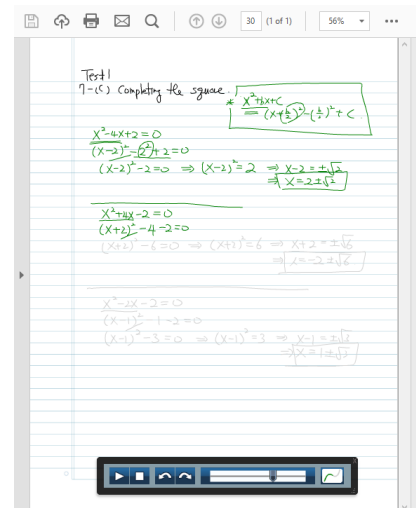 30 (1 of 1) 56%
Test 1
7-(c) Completing the square.
* x²+bx+c
= (x+(b/2))²-(b/2)²+c
x²-4x+2=0
(x-2)²-2²+2=0
(x-2)²-2=0 ⇒ (x-2)²=2 ⇒ x-2=±√2
⇒ x=2±√2
x²+4x-2=0
(x+2)²-4-2=0
(x+2)²-6=0 ⇒ (x+2)²=6 ⇒ x+2=±√6
⇒ x=-2±√6
x²-2x-2=0
(x-1)²-1-2=0
(x-1)²-3=0 ⇒ (x-1)²=3 ⇒ x-1=±√3
⇒ x=1±√3